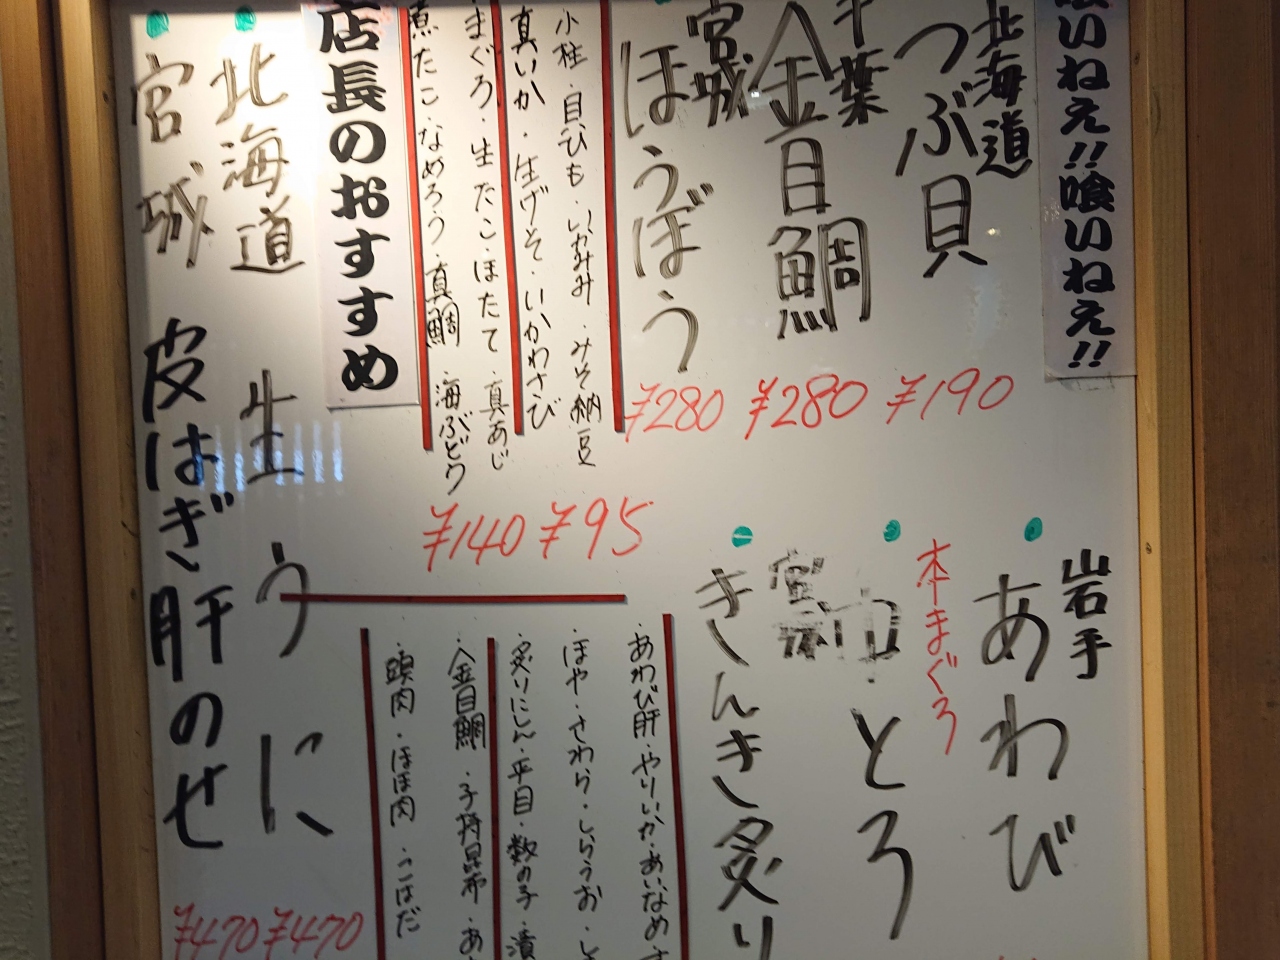 喰いねえ!!喰いねえ!!
北海道
つぶ貝
¥190
千葉
金目鯛
¥280
宮城
ほうぼう
¥280
小柱・目ひも・いかみみ・みそ納豆
真いか・生げそ・いかわさび
¥95
まぐろ・生たこ・ほたて・真あじ
煮たこ・なめろう・真鯛・海ぶどう
¥140
店長のおすすめ
北海道
生うに
¥470
宮城
皮はぎ肝のせ
¥470
岩手
あわび
本まぐろ
中とろ
きんき炙り
・あわび肝・やりいか・あいなめ・
・ほや・さわら・しらうお・し
・炙りにしん・平目・数の子・漬
・金目鯛・子持昆布・あ
・頭肉・ほほ肉・こはだ